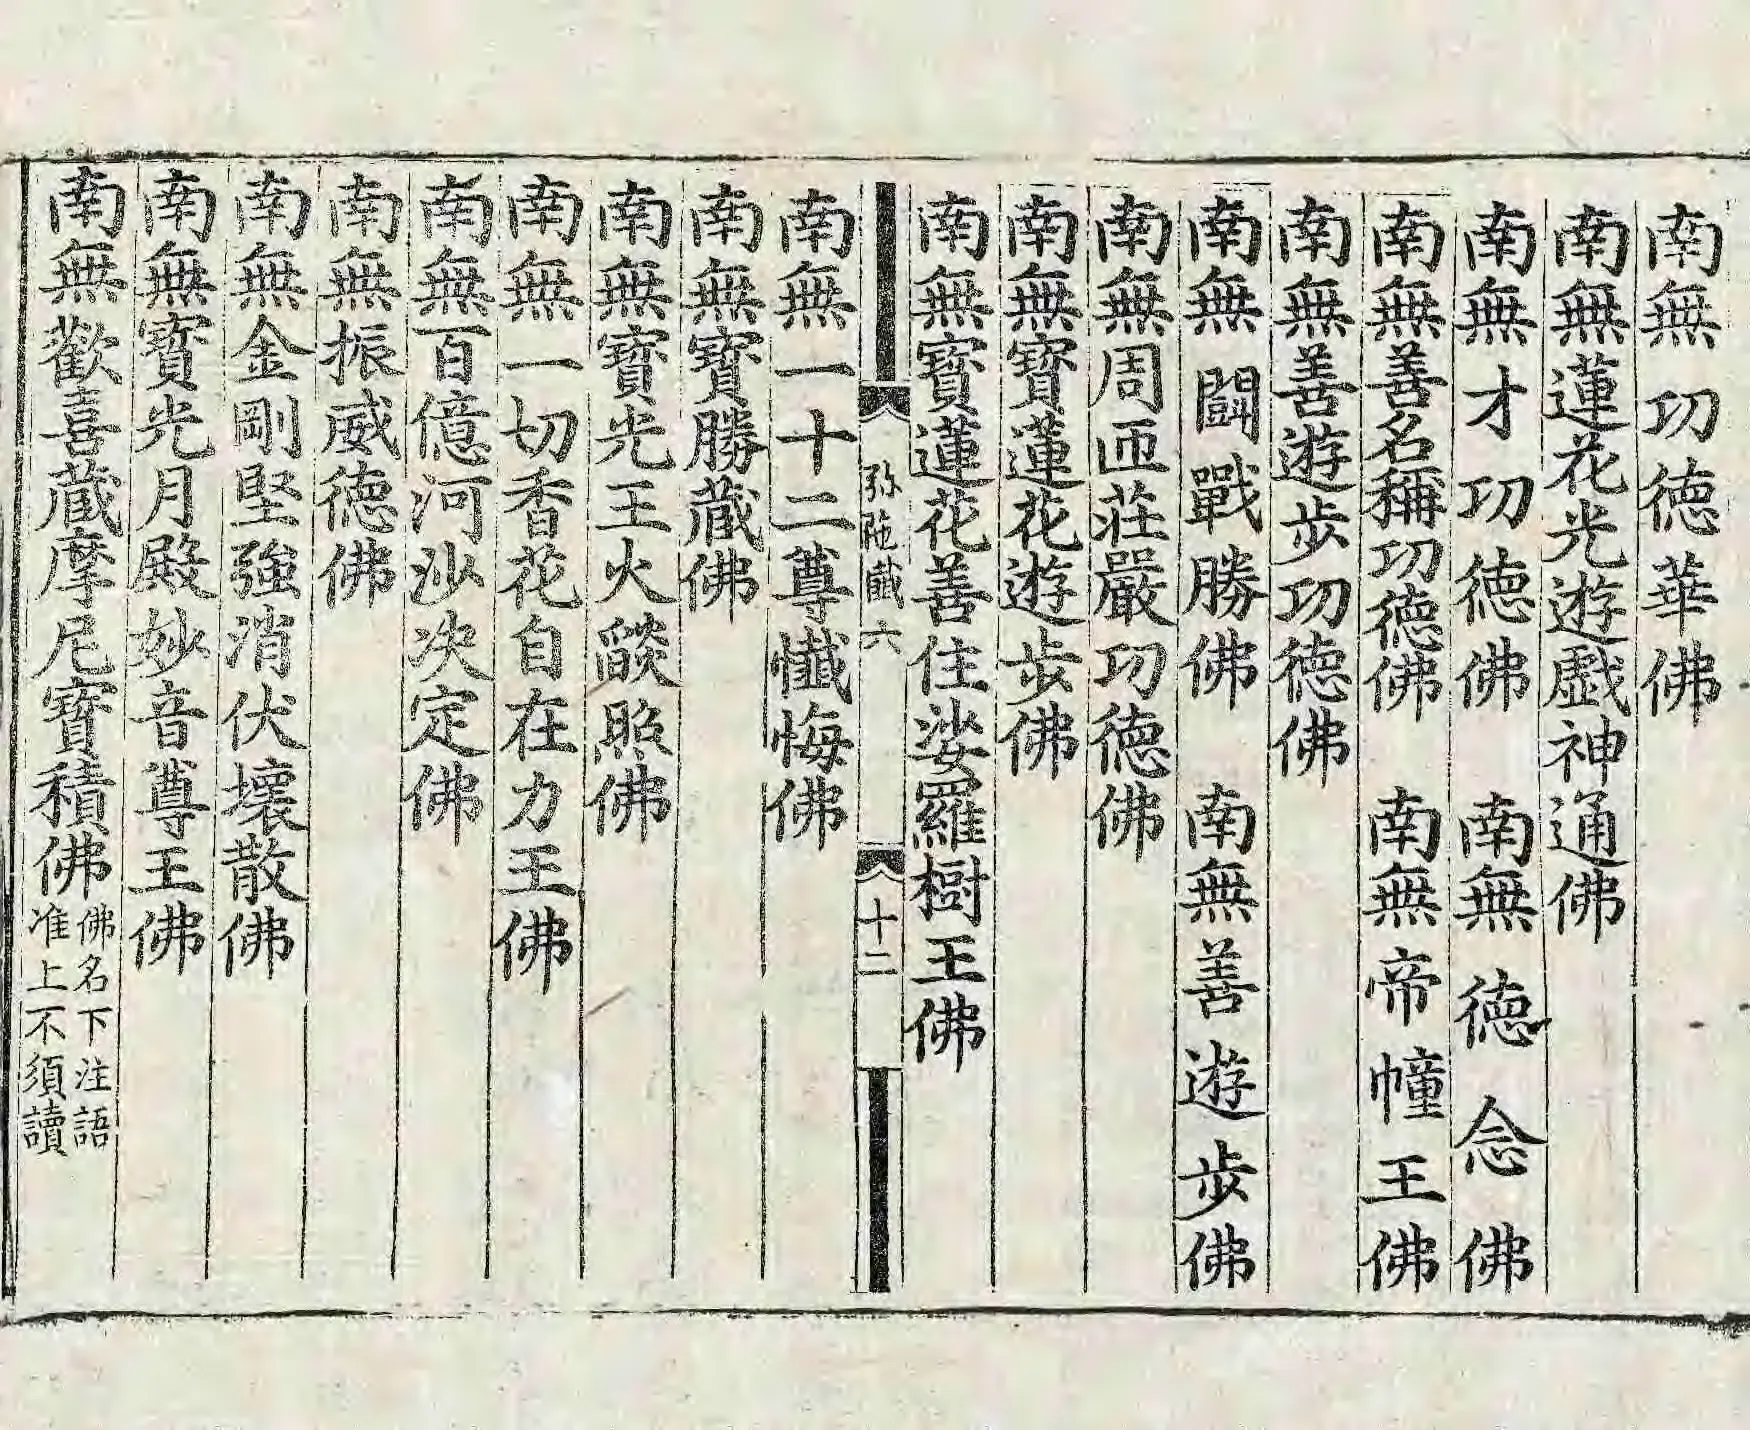 南無功德華佛
南無蓮花光遊戲神通佛
南無才功德佛　南無德念佛
南無善名稱功德佛　南無帝幢王佛
南無善遊步功德佛
南無鬪戰勝佛　南無善遊步佛
南無周匝莊嚴功德佛
南無寶蓮花遊步佛
南無寶蓮花善住娑羅樹王佛
弥陁懴六　十二
南無一十二尊懺悔佛
南無寶勝藏佛
南無寶光王火燄照佛
南無一切香花自在力王佛
南無百億河沙決定佛
南無振威德佛
南無金剛堅強消伏壞散佛
南無寶光月殿妙音尊王佛
南無歡喜藏摩尼寶積佛
佛名下注語
准上不須讀